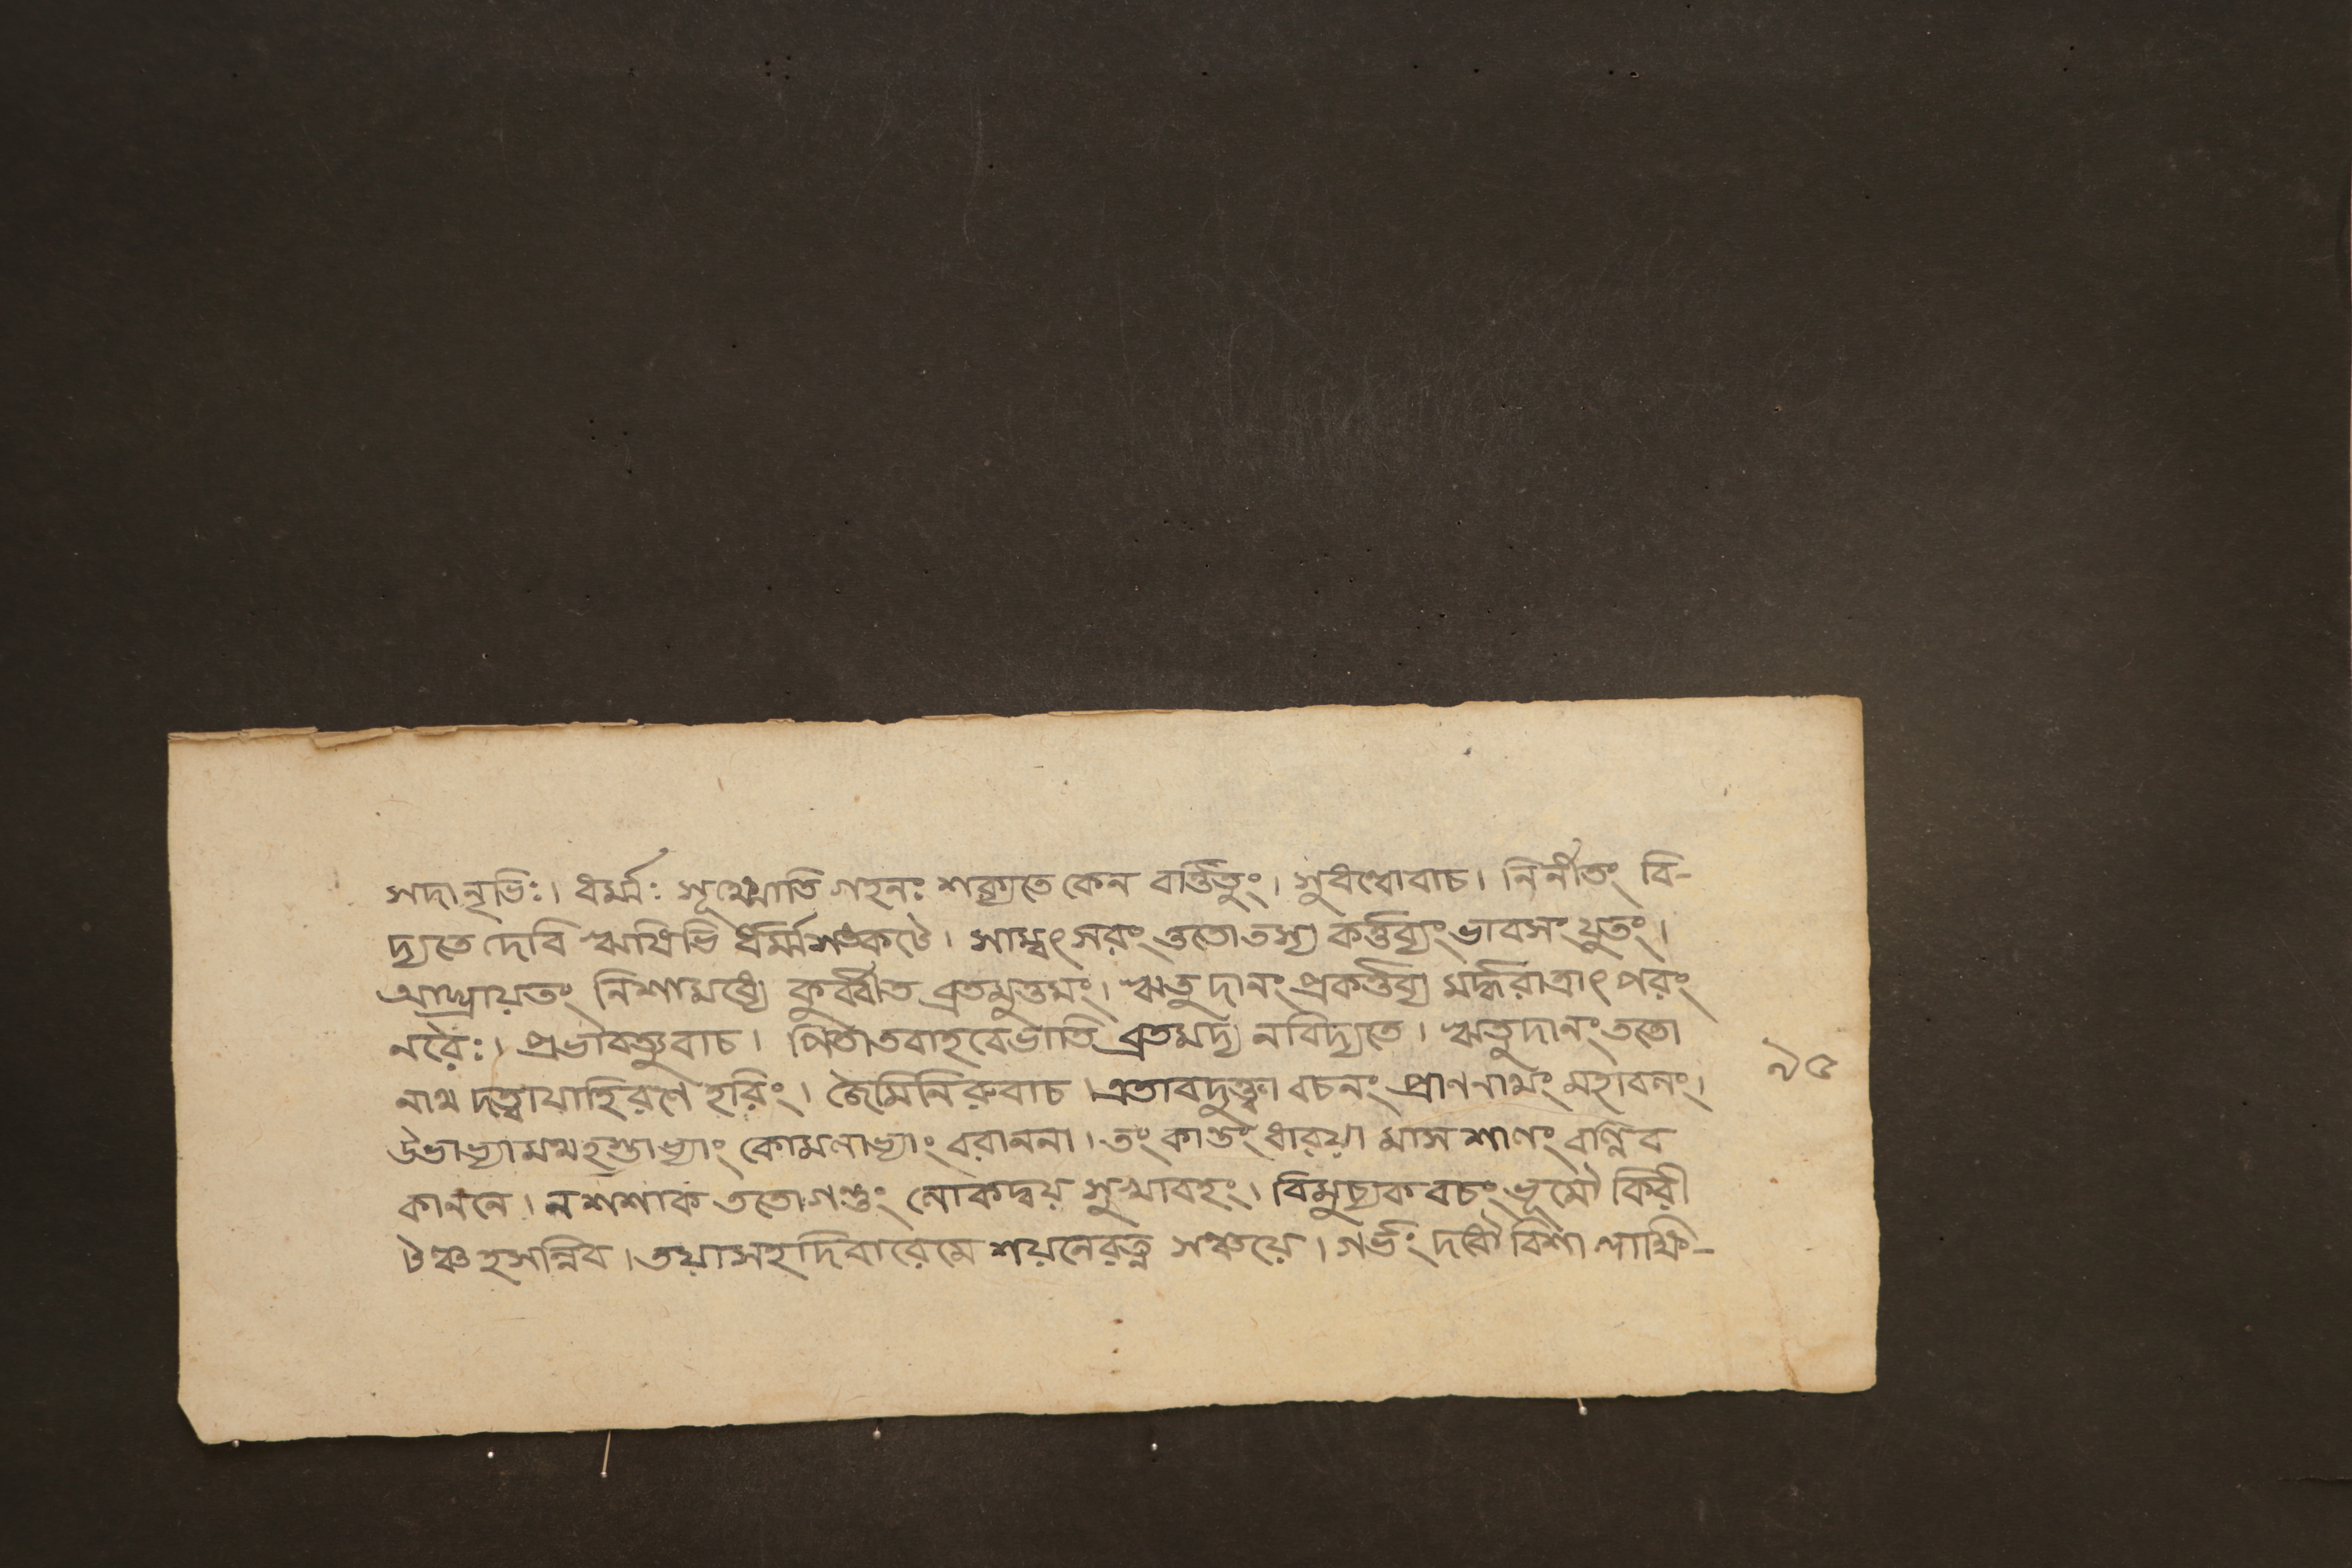 সদা নৃভিঃ। ধর্ম্মঃ সূক্ষ্মোতি গহনঃ শক্যতে কেন বর্ত্তিতুং। সুধণ্বোবাচ। নির্নীতং বি-
দ্যতে দেবি ঋষিভি র্ধর্ম্মশঙ্কটে। সাম্বৎসরং ততো তস্য কর্ত্তব্যং ভাবসংযুতং।
আঘ্রায়তং নিশামধ্যে কুর্ব্বীত ব্রতমুত্তমং। ঋতু দানং প্রকর্ত্তব্য মর্দ্ধরাত্রাৎ পরং
নরৈঃ। প্রভাবত্যুবাচ। পিতাতবাহবেভাতি ব্রতমদ্য নবিদ্যতে। ঋতুদানং ততো
নাথ দত্ত্বাযাহিরণে হরিং। জৈমিনিরুবাচ। এতাবদুক্ত্বা বচনং প্রাণনাথং মহাবলং।
উভাভ্যামথহস্তাভ্যাং কোমলাভ্যাং বরাননা। তং কান্তং ধারয়া মাস শালং বল্লিব
কাননে। ন শশাক ততোগন্তুং লোকদ্বয় সুখাবহং। বিমুচ্যকবচং ভূমৌ কিরী
টঞ্চ হসন্নিব। তয়াসহদিবারেমে শয়নেরত্ন সঞ্চয়ে। গর্ভং দধৌ বিশালাক্ষি-
৯৫